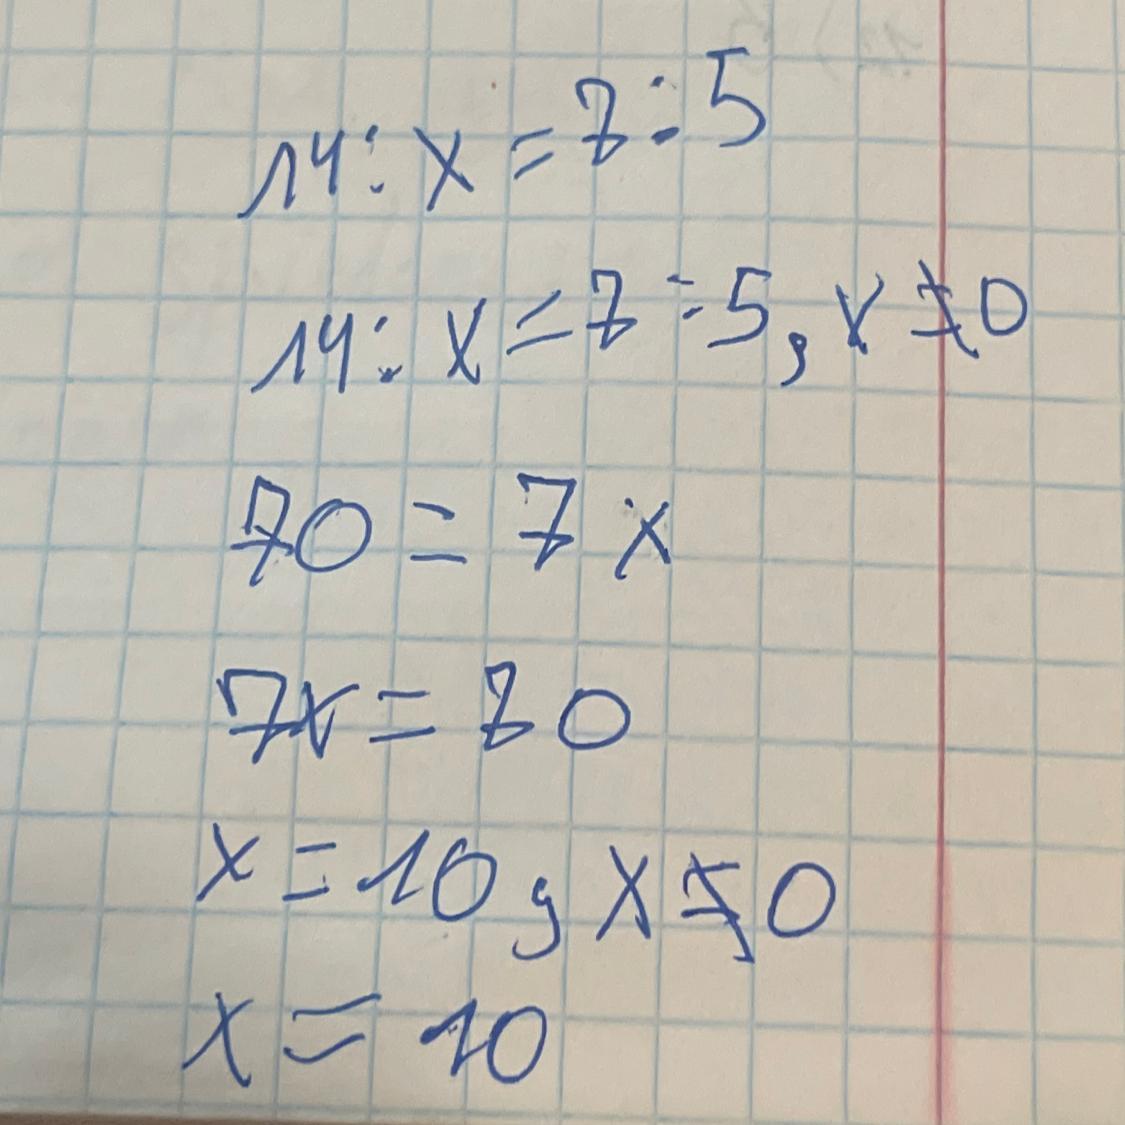 14 : x = 7 : 5
14 : x = 7 : 5, x ≠ 0
70 = 7x
7x = 70
x = 10, x ≠ 0
x = 10